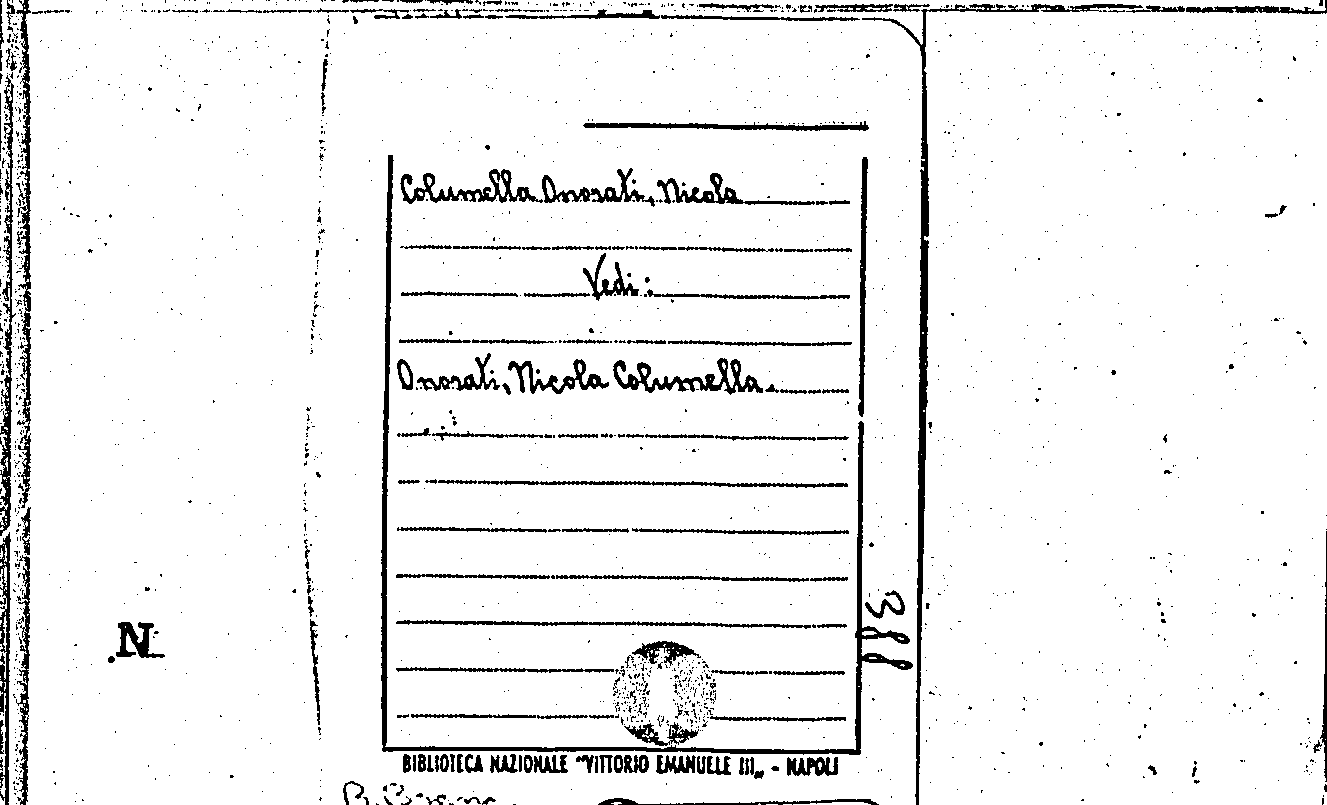 Columella Onorati, Nicola
Vedi:
Onorati, Nicola Columella.
388
N
BIBLIOTECA NAZIONALE "VITTORIO EMANUELE III„ - NAPOLI